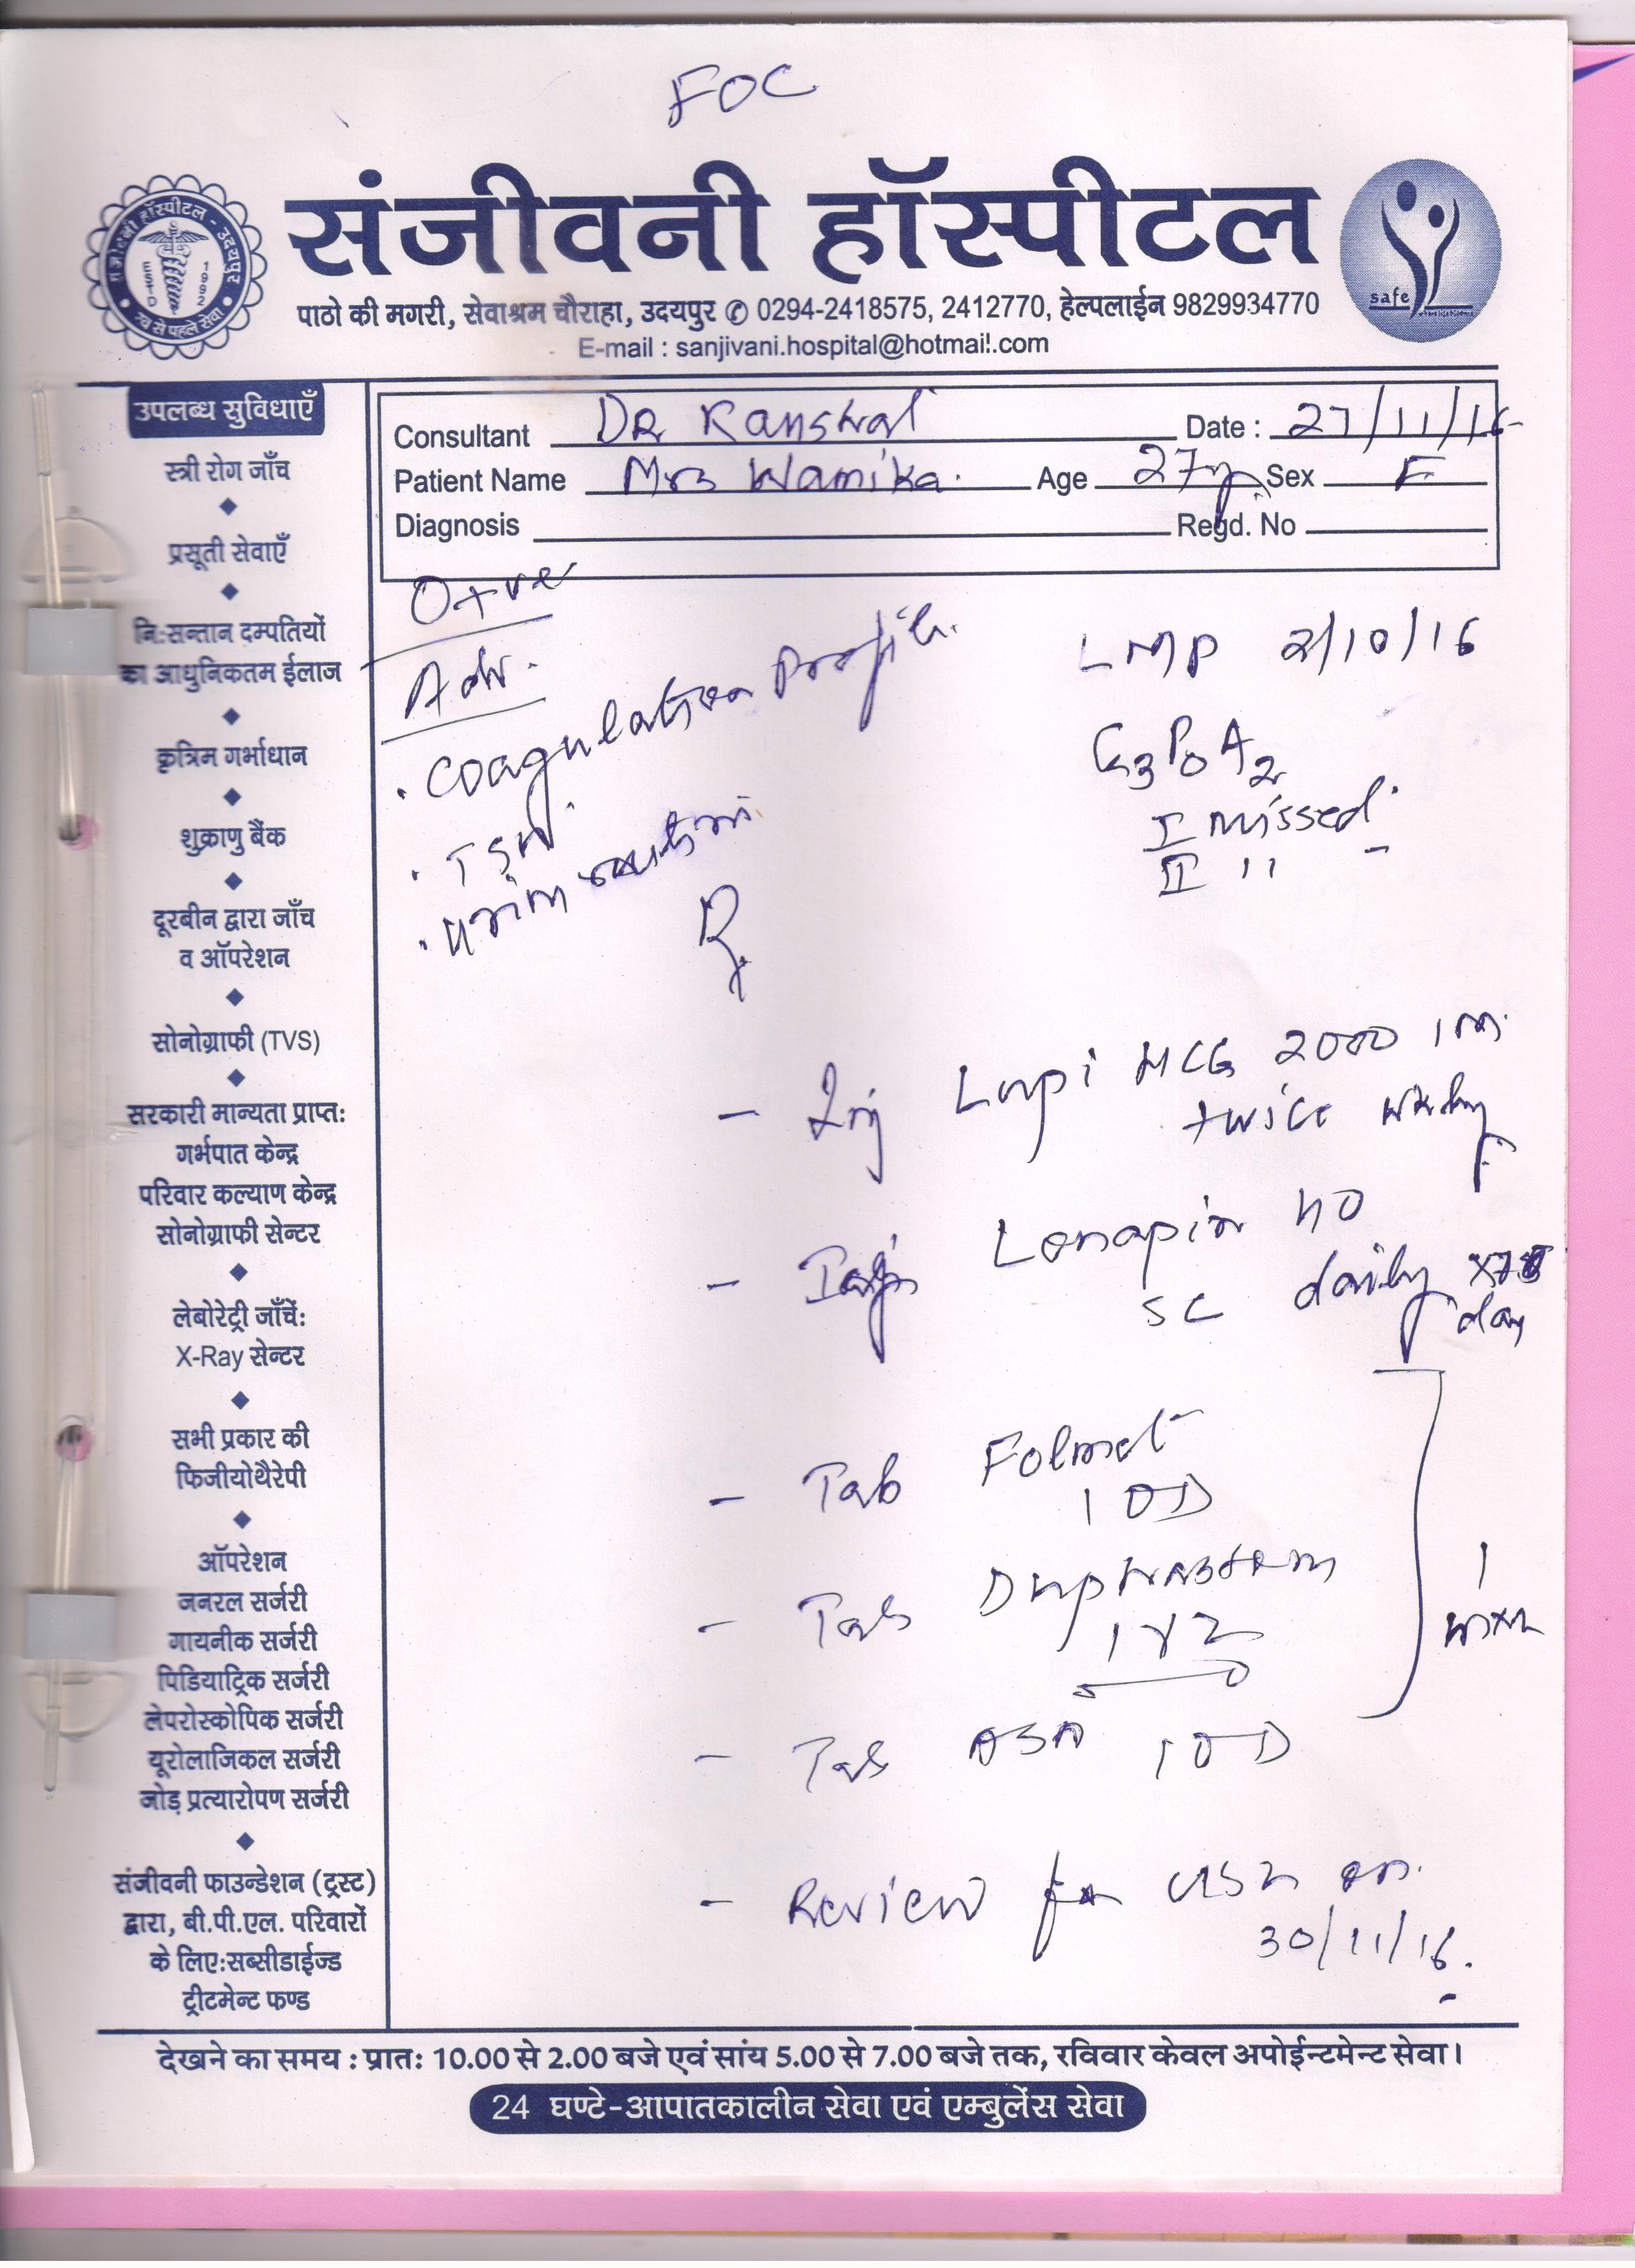 FOC
संजीवनी हॉस्पीटल
पाठो की मगरी, सेवाश्रम चौराहा, उदयपुर ✆ 0294-2418575, 2412770, हेल्पलाईन 9829934770
E-mail : sanjivani.hospital@hotmail.com
safe
ESTD 1992
उपलब्ध सुविधाएँ
स्त्री रोग जाँच
प्रसूती सेवाएँ
नि:सन्तान दम्पतियों
का आधुनिकतम ईलाज
कृत्रिम गर्भाधान
शुक्राणु बैंक
दूरबीन द्वारा जाँच
व ऑपरेशन
सोनोग्राफी (TVS)
सरकारी मान्यता प्राप्त:
गर्भपात केन्द्र
परिवार कल्याण केन्द्र
सोनोग्राफी सेन्टर
लेबोरेट्री जाँचें:
X-Ray सेन्टर
सभी प्रकार की
फिजीयोथैरेपी
ऑपरेशन
जनरल सर्जरी
गायनीक सर्जरी
पिडियाट्रिक सर्जरी
लेपरोस्कोपिक सर्जरी
यूरोलाजिकल सर्जरी
जोड़ प्रत्यारोपण सर्जरी
संजीवनी फाउन्डेशन (ट्रस्ट)
द्वारा, बी.पी.एल. परिवारों
के लिए:सब्सीडाईज्ड
ट्रीटमेन्ट फण्ड
Consultant DR Date : 27/11/16
Patient Name Mrs Wamika. Age 27y Sex F
Diagnosis Regd. No
O+ve
Adv.
. Coagulation Profile.
. TSH
. Urine routine
LMP 2/10/16
G3P0A2
I missed
II "
Rx
- Inj Lupi HCG 2000 IM.
twice weekly
- Inj Lonapin 40
SC daily
day
- Tab Folmet
1 OD
- Tab Duphaston
1
- Tab ASA 1 OD
- Review for USG on.
30/11/16.
देखने का समय : प्रात: 10.00 से 2.00 बजे एवं सांय 5.00 से 7.00 बजे तक, रविवार केवल अपोईन्टमेन्ट सेवा।
24 घण्टे-आपातकालीन सेवा एवं एम्बुलेंस सेवा